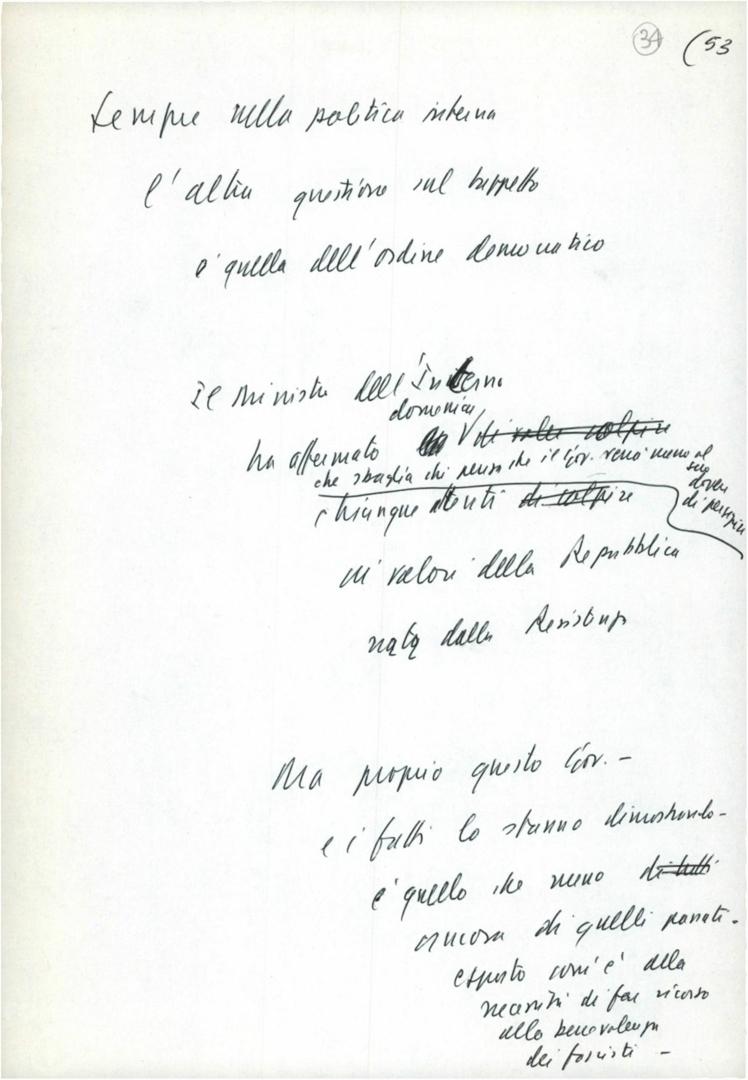 34 (53
Sempre nella politica interna
l'altra questione sul tappeto
e' quella dell'ordine democratico
Il Ministro dell'Interno
domenica
ha affermato di voler colpire
che sbaglia chi pensa che il Gov. verrà meno al
suo
dovere
di perseguire
chiunque attenti di colpire
ai valori della Repubblica
nata dalla Resistenza
Ma proprio questo Gov. -
e i fatti lo stanno dimostrando -
e' quello che meno di tutti
ancora di quelli passati -
esposto com'è alla
necessità di far ricorso
alla benevolenza
dei fascisti -